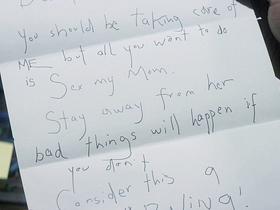 you should be taking care of
ME but all you want to do
is Sex my Mom.
Stay away from her
bad things will happen if
you don't
Consider this a